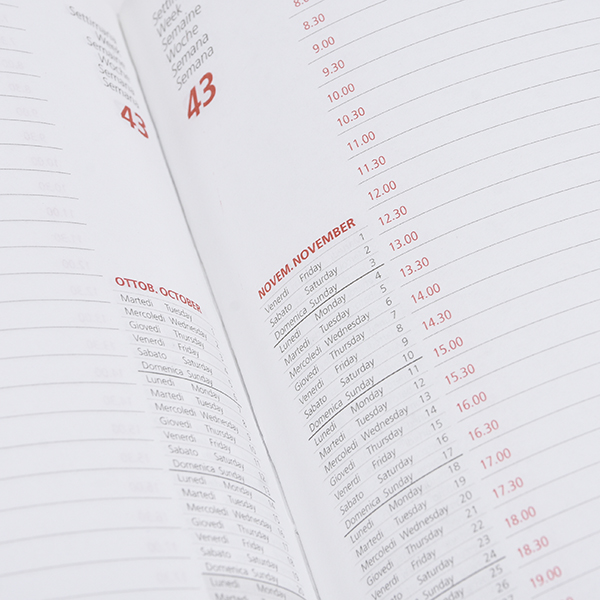 Settimana
Week
Semaine
Woche
Semana
Semana
43
OTTOB. OCTOBER
Martedì Tuesday
Mercoledì Wednesday
Giovedì Thursday
Venerdì Friday
Sabato Saturday
Domenica Sunday
Lunedì Monday
Martedì Tuesday
Mercoledì Wednesday
Giovedì Thursday
Venerdì Friday
Sabato Saturday
Domenica Sunday
Lunedì Monday
Martedì Tuesday
Mercoledì Wednesday
Giovedì Thursday
Venerdì Friday
Sabato Saturday
Domenica Sunday
Lunedì Monday
Martedì Tuesday
Week
Semaine
Woche
Semana
Semana
43
NOVEM. NOVEMBER
Venerdì Friday 1
Sabato Saturday 2
Domenica Sunday 3
Lunedì Monday 4
Martedì Tuesday 5
Mercoledì Wednesday 6
Giovedì Thursday 7
Venerdì Friday 8
Sabato Saturday 9
Domenica Sunday 10
Lunedì Monday 11
Martedì Tuesday 12
Mercoledì Wednesday 13
Giovedì Thursday 14
Venerdì Friday 15
Sabato Saturday 16
Domenica Sunday 17
Lunedì Monday 18
Martedì Tuesday 19
Mercoledì Wednesday 20
Giovedì Thursday 21
Venerdì Friday 22
Saturday 23
Sunday 24
25
26
8.30
9.00
9.30
10.00
10.30
11.00
11.30
12.00
12.30
13.00
13.30
14.00
14.30
15.00
15.30
16.00
16.30
17.00
17.30
18.00
18.30
19.00